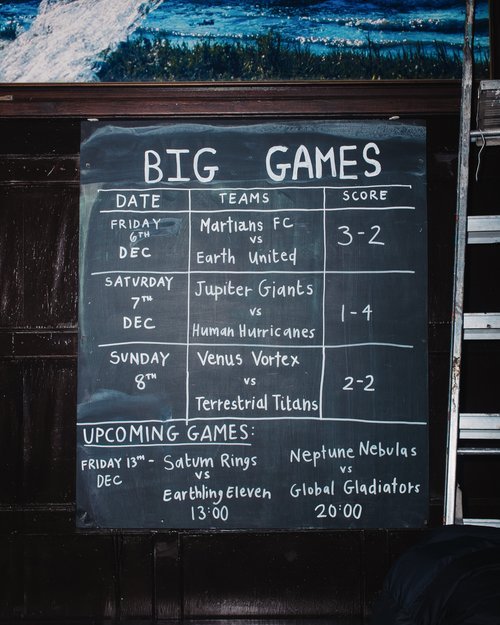 BIG GAMES
DATE TEAMS SCORE
FRIDAY
6TH
DEC
Martians FC
vs
Earth United
3-2
SATURDAY
7TH
DEC
Jupiter Giants
vs
Human Hurricanes
1-4
SUNDAY
8TH
Venus Vortex
vs
Terrestrial Titans
2-2
UPCOMING GAMES:
FRIDAY 13TH -
DEC
Saturn Rings
vs
Earthling Eleven
13:00
Neptune Nebulas
vs
Global Gladiators
20:00